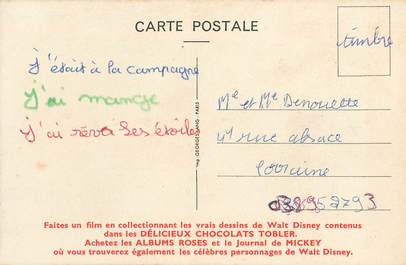 CARTE POSTALE
timbre
J'était à la campagne
J'ai mangé
J'ai rêver les étoiles
Me et Me Denouette
41 rue alsace
Lorraine
Imp. GEORGES LANG - PARIS
Faites un film en collectionnant les vrais dessins de Walt Disney contenus
dans les DÉLICIEUX CHOCOLATS TOBLER.
Achetez les ALBUMS ROSES et le Journal de MICKEY
où vous trouverez également les célèbres personnages de Walt Disney.